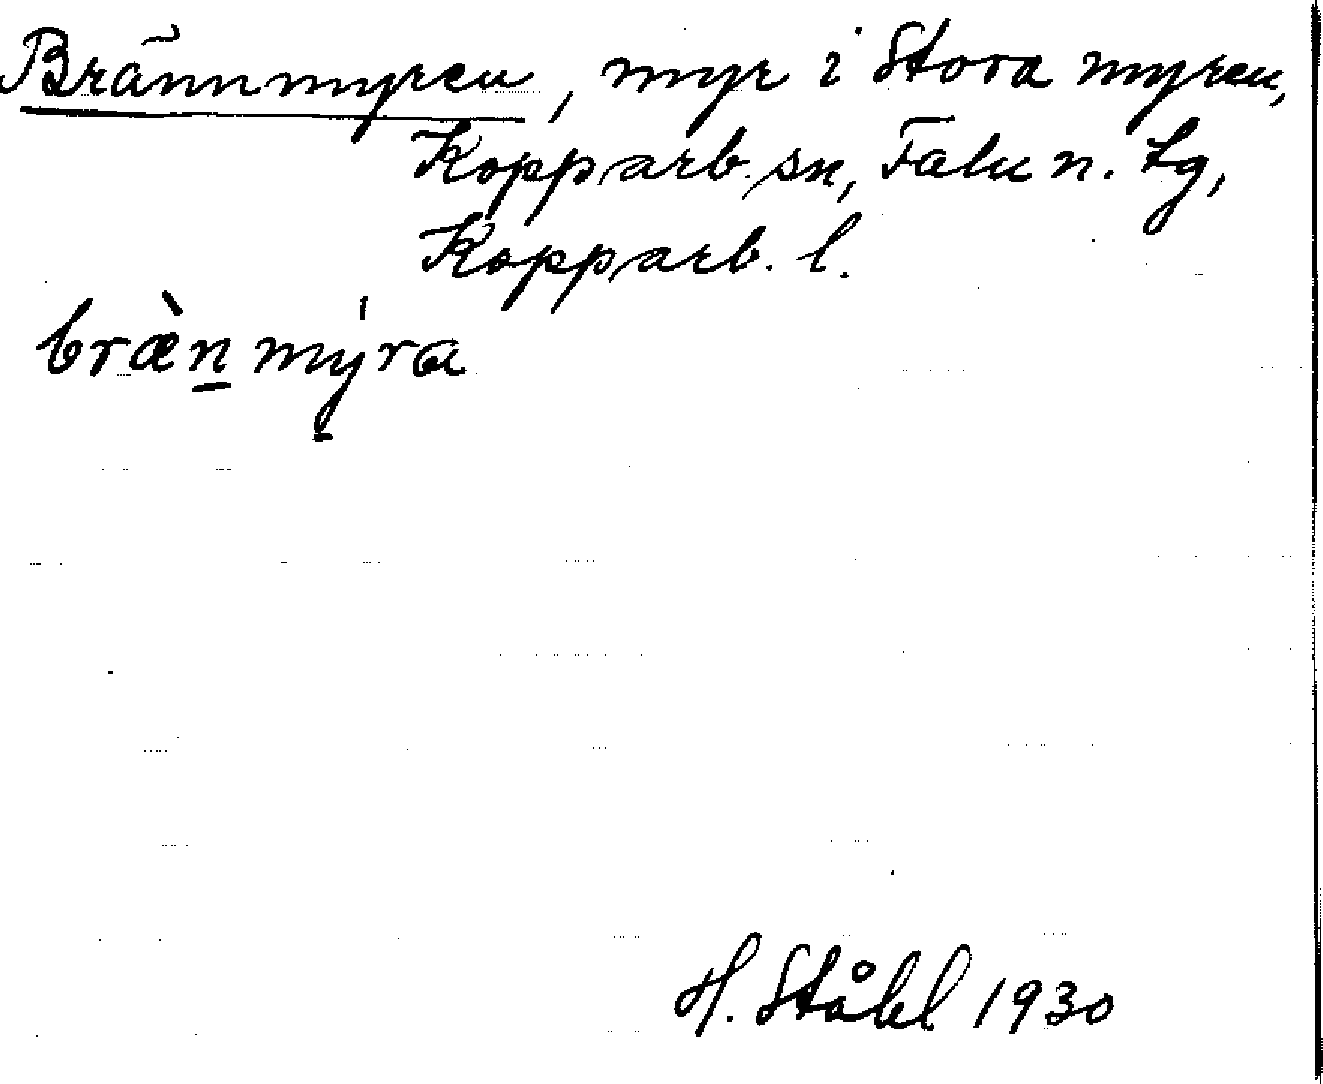 Brännmyren, myr i Stora myren,
Kopparb. sn, Falu n. tg,
Kopparb. l.
bræ̀n̲mýra
H. Ståhl 1930